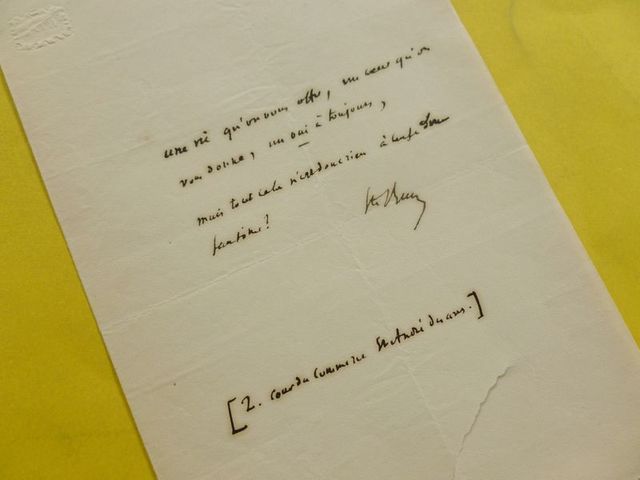 une vie qu'on vous offre, un cœur qu'on
vous donne, un oui à toujours,
mais tout cela n'est donc rien à
fantôme?
Ste Beuve
[2. cour du Commerce St André des arts.]